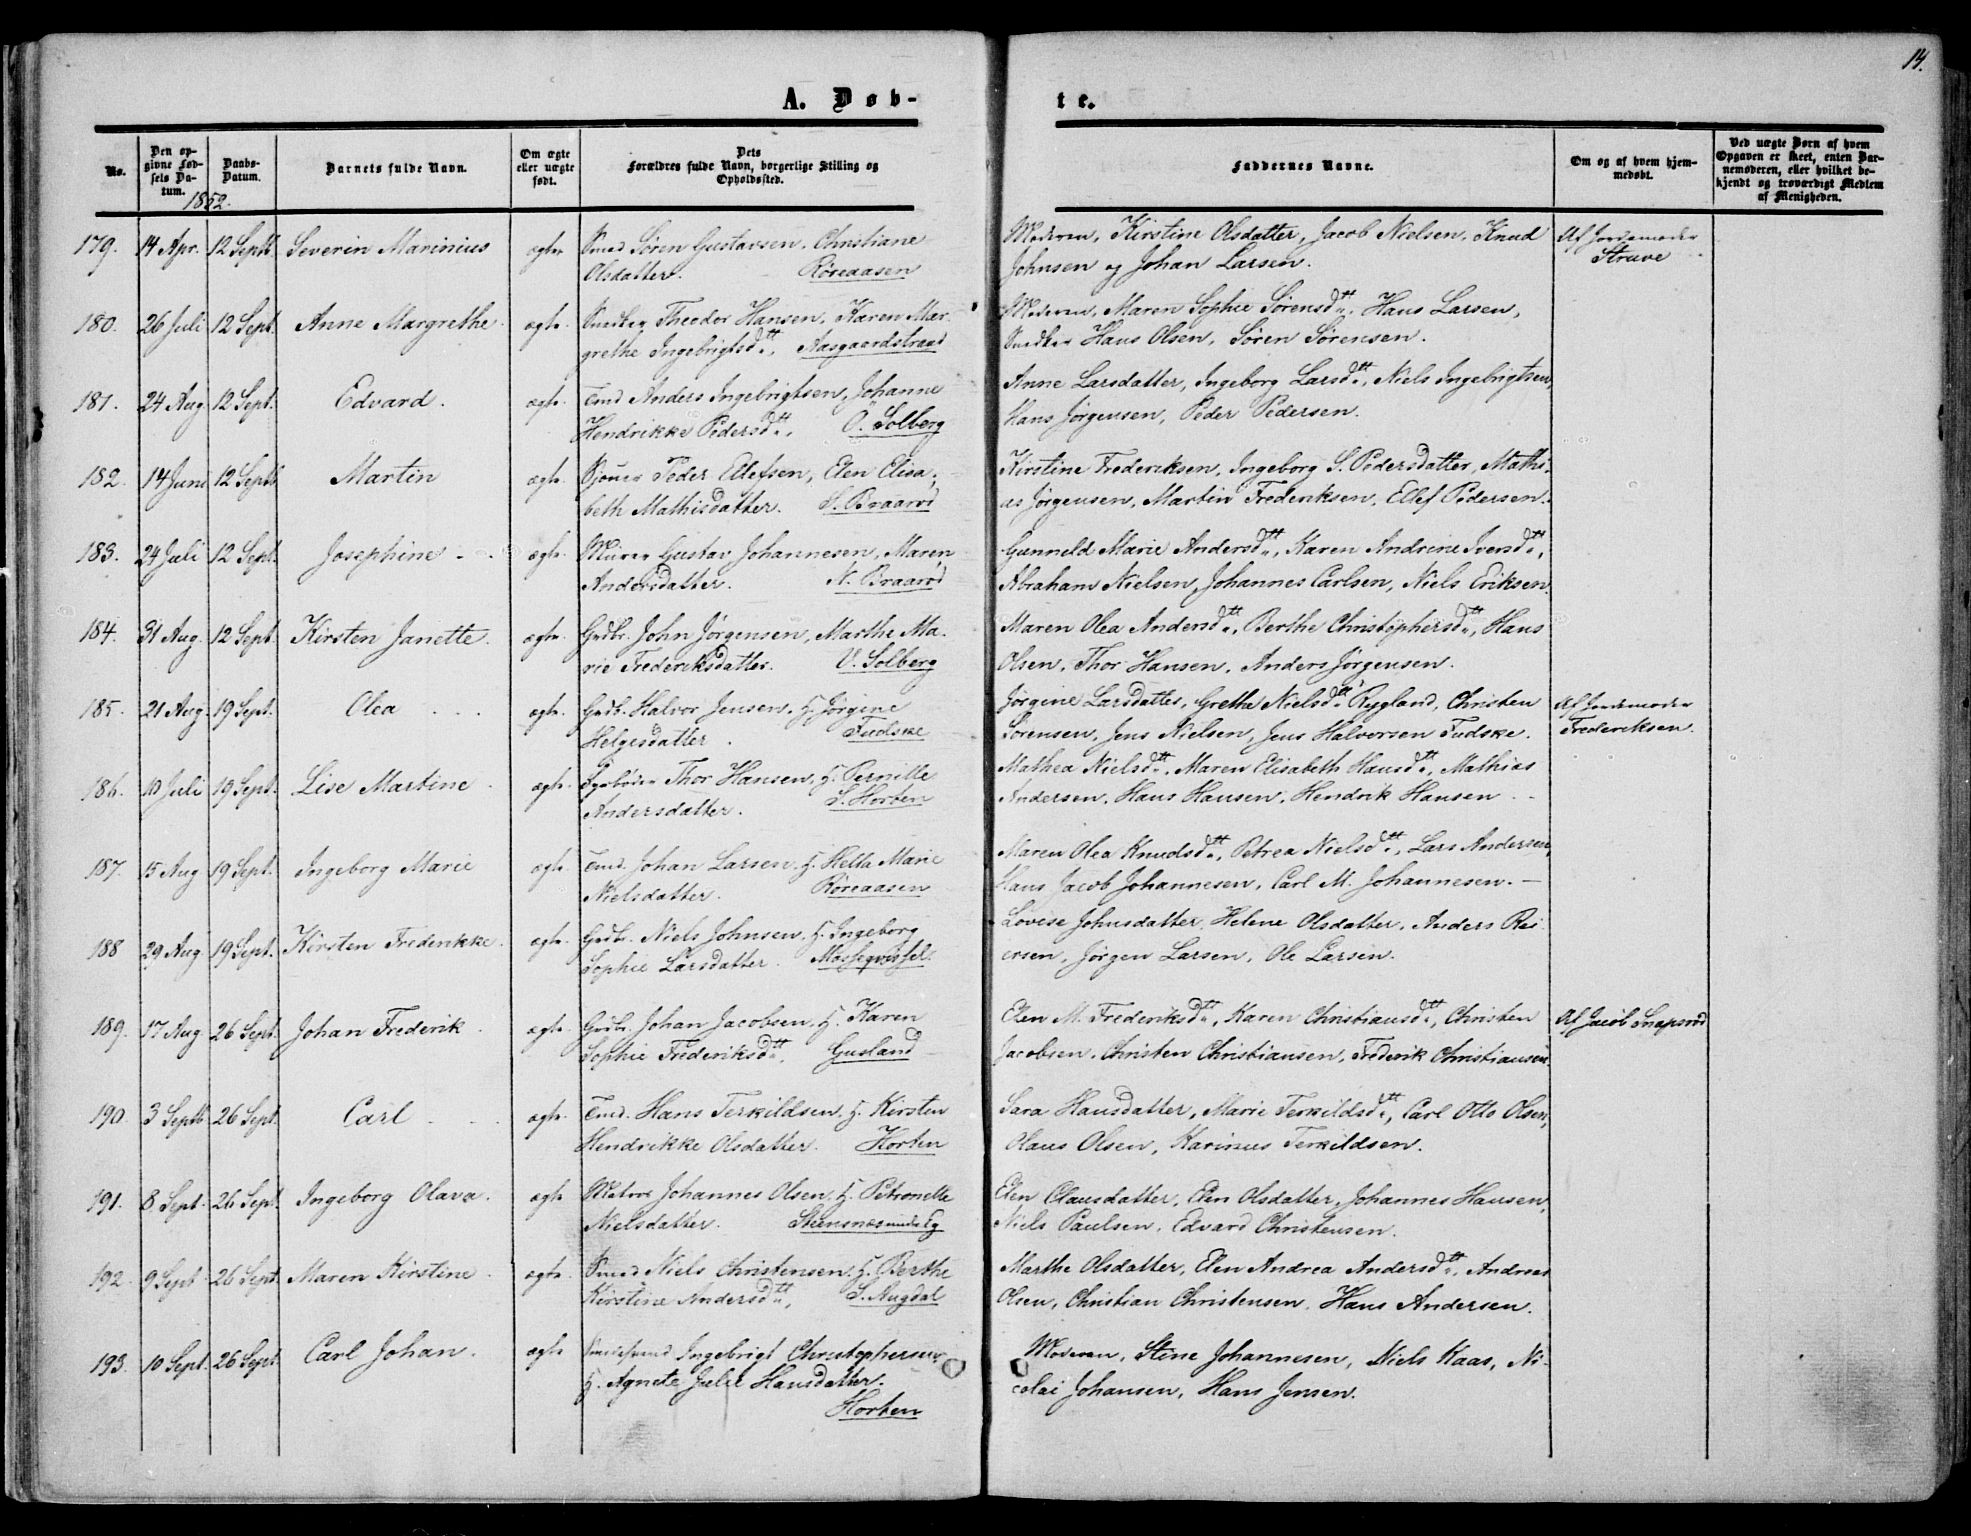 14.
A. Døb-
te.
No.
Den op-
givne Fød-
sels Da-
tum.
Daabs-
Datum.
Barnets fulde Navn.
Om ægte
eller uægte
født.
Dets
Forældres fulde Navn, borgerlige Stilling og
Opholdssted.
Faddernes Navne.
Om og af hvem hjem-
medøbt.
Ved uægte Børn af hvem
Opgaven er skeet, enten Bar-
nemoderen, eller hvilket be-
kjendt og troværdigt Medlem
af Menigheden.
1852.
179. 14 Apr. 12 Septb Severin Marinius ægte Smed Søren Gustavsen, Christiane
Olsdatter. Röreaasen
Moderen, Kirstine Olsdatter, Jacob Nielsen, Knud
Johnsen og Johan Larsen.
Af Jordemoder
Struve
180. 26 Juli 12 Sept. Anne Margrethe ægte. Snedker Theodor Hansen, Karen Mar-
grethe Ingebrigtsdtt., Aasgaardstrand
Moderen, Maren Sophie Sørensdtt., Hans Larsen,
Snedker Hans Olsen, Søren Sørensen.
181. 24 Aug 12 Sept. Edvard. ægte. Tmd Anders Ingebrigtsen, Johanne
Hendrikke Pedersdtt., O. Solberg
Anne Larsdatter, Ingeborg Larsdtt., Niels Ingebrigtsen,
Hans Jørgensen, Peder Pedersen.
182. 14 Juni 12 Septb Martin ægte. Peder Ellefsen, Elen Elisa-
beth Mathisdatter. S. Braarød
Kirstine Frederiksen, Ingeborg S. Pedersdatter, Mathi-
as Jørgensen, Martin Frederiksen, Ellef Pedersen.
183. 24 Juli 12 Sept. Josephine ægte. Murer Gustav Johannesen, Maren
Andersdatter. N. Braarød
Gunneld Marie Andersdtt., Karen Andrine Iversdtt.,
Abraham Nielsen, Johannes Carlsen, Niels Eriksen
184. 31 Aug. 12 Sept. Kirsten Janette. ægte. Grdbr. John Jørgensen, Marthe Ma-
rie Frederiksdatter. V. Solberg
Maren Olea Andersdtt., Berthe Christophersdtt., Hans
Olsen, Thor Hansen, Anders Jørgensen.
185. 21 Aug. 19 Sept. Olea ægte. Grdb. Halvor Jensen, H. Jørgine
Helgesdatter. Fudske
Jørgine Larsdatter, Grethe Nielsdtt. Rygland, Christen
Sørensen, Jens Nielsen, Jens Halvorsen Fudske.
Af Jordemoder
Frederiksen.
186. 10 Juli 19 Sept. Lise Martine ægte. Thor Hansen, H. Pernille
Andersdatter. S. Horten
Mathea Nielsdtt., Maren Elisabeth Hansdtt., Mathias
Andersen, Hans Hansen, Hendrik Hansen
187. 15 Aug 19 Sept. Ingeborg Marie ægte. Tmd. Johan Larsen, H. Hella Marie
Nielsdatter. Röreaasen
Maren Olea Knudsdtt., Petrea Nielsdtt., Lars Andersen,
Hans Jacob Johannesen, Carl M. Johannesen.
188 29 Aug 19 Sept. Kirsten Frederikke. ægte. Grdbr. Niels Johnsen, H. Ingeborg
Sophie Larsdatter.
Lovise Johnsdatter, Helene Olsdatter, Anders Rei-
ersen, Jørgen Larsen, Ole Larsen.
189. 17 Aug 26 Sept. Johan Frederik. ægte. Grdbr. Johan Jacobsen, H. Karen
Sophie Frederiksdtt., Gusland
Elen M. Frederiksdtt., Karen Christiansdtt., Christen
Jacobsen, Christen Christiansen, Frederik Christiansen.
Af Jacob Snapsrød
190. 3 Septb 26 Sept. Carl ægte. Tmd. Hans Terkildsen, H. Kirsten
Hendrikke Olsdatter. Horten
Sara Hansdatter, Marie Terkildsdtt., Carl Otto Olsen,
Olaus Olsen, Karinus Terkildsen.
191. 8 Sept. 26 Sept. Ingeborg Olava. ægte Matros Johannes Olsen, H. Petronelle
Nielsdatter.
Elen Clausdatter, Elen Olsdatter, Johannes Hansen,
Niels Paulsen, Edvard Christensen.
192. 9 Sept 26 Sept. Maren Kirstine. ægte. Smed Niels Christensen, H. Berthe
Kirstine Andersdtt., S. Augdal
Marthe Olsdatter, Elen Andrea Andersdtt., Andreas
Olsen, Christian Christensen, Hans Andersen.
193. 10 Sept. 26 Sept. Carl Johan. ægte Ingebrigt Christophersen,
H. Agnete Julie Hansdatter.
Horten
Moderen, Stine Johannesen, Niels Kaas, Ni-
colai Johansen, Hans Jensen.